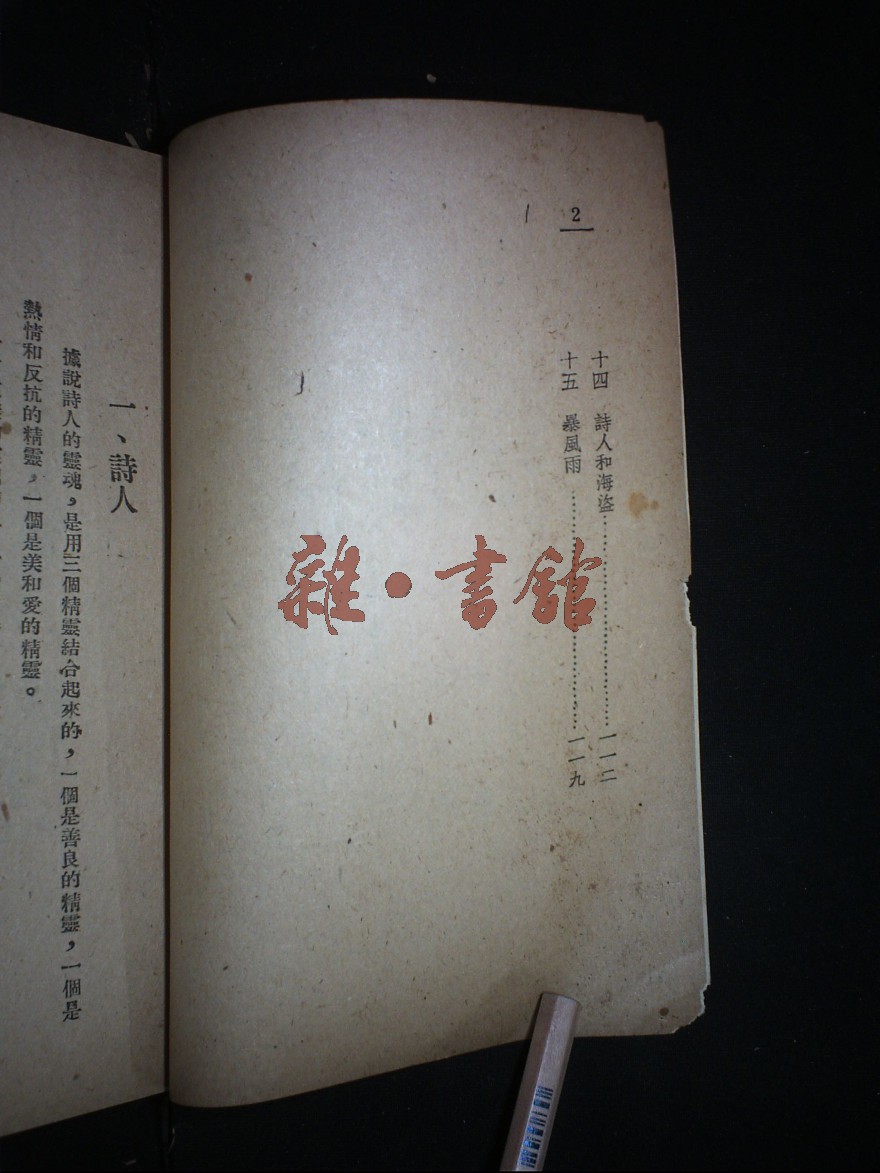 2
十四　詩人和海盜……………………一一二
十五　暴風雨……………………一一九
雜·書館
一、詩人
據說詩人的靈魂，是用三個精靈結合起來的，一個是善良的精靈，一個是
熱情和反抗的精靈，一個是美和愛的精靈。